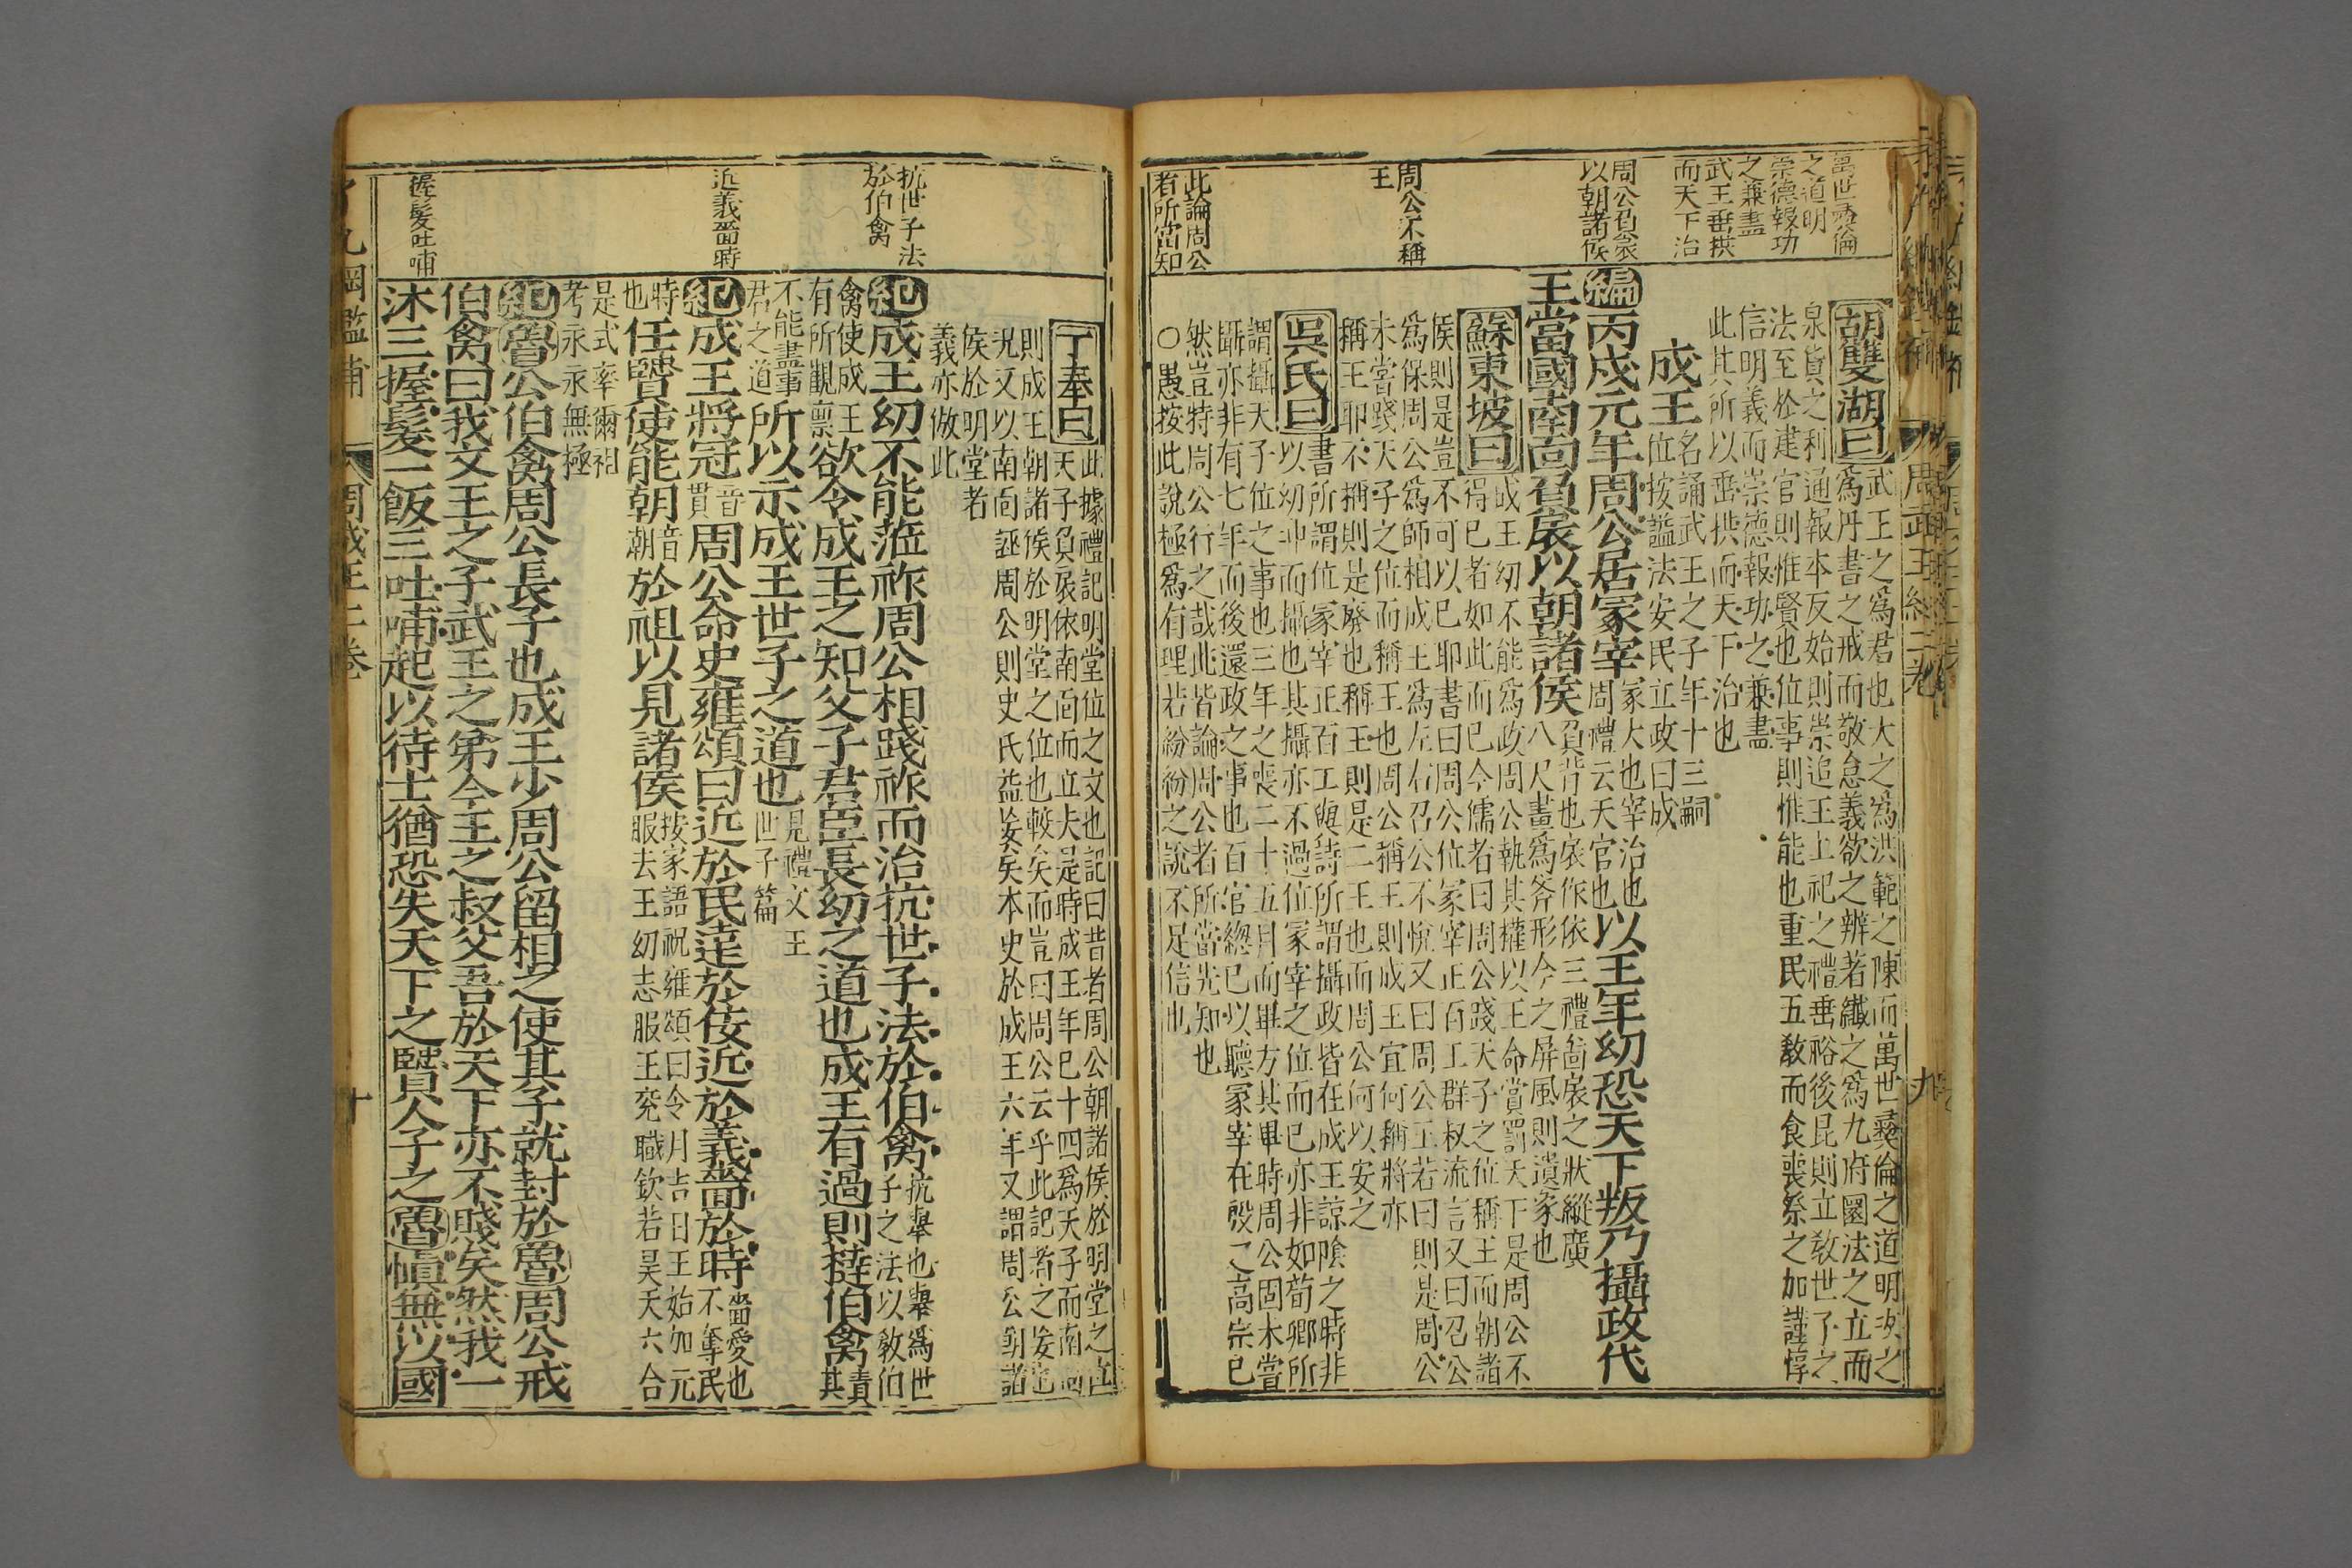 萬世彝倫
之道明
崇德報功
之兼盡
武王垂拱
而天下治
周公負扆
以朝諸侯
周公不稱
王
此論周公
者所當知
胡雙湖曰
武王之爲君也大之爲洪範之陳而萬世彝倫之道明次之
爲丹書之戒而敬怠義欲之辨著纖之爲九府圜法之立而
泉貨之利通報本反始則崇追王上祀之禮垂裕後昆則立敎世子之
法至於建官則惟賢也位事則惟能也重民五敎而食喪祭之加謹惇
信明義而崇德報功之兼盡
此其所以垂拱而天下治也
成王
名誦武王之子年十三嗣
位按謚法安民立政曰成
編丙戌元年周公居冢宰
冢大也宰治也
周禮云天官也
以王年幼恐天下叛乃攝政代
王當國南面負扆以朝諸侯
負背也扆作依三禮啚扆之狀縱廣
八尺畫爲斧形今之屏風則遺象也
蘇東坡曰
成王幼不能爲政周公執其權以王命賞罰天下是周公不
得已者如此而已今儒者曰周公踐天子之位稱王而朝諸
侯則是豈不可以已耶書曰周公位冢宰正百工群叔流言又曰召公
爲保周公爲師相成王爲左右召公不悅又曰周公王若曰則是周公
未嘗踐天子之位而稱王也周公稱王則成王宜何稱將亦
稱王耶不稱則是廢也稱王則是二王也而周公何以安之
吳氏曰
書所謂位冢宰正百工與詩所謂攝政皆在成王諒陰之時非
以幼冲而攝也其攝亦不過位冢宰之位而已亦非如荀卿所
謂攝天子位之事也三年之喪二十五月而畢方其畢時周公固未嘗
攝亦非有七年而後還政之事也百官總已以聽冢宰在殷之高宗已
然豈特周公行之哉此皆論周公者所當先知也
○愚按此說極爲有理若紛紛之說不足信也
抗世子法
於伯禽
近義嗇時
握髮吐哺
丁奉曰
此據禮記明堂位之文也記曰昔者周公朝諸侯於明堂之位
天子負扆依南向而立夫是時成王年巳十四爲天子而南面
則成王朝諸侯於明堂之位也較矣而豈曰周公云乎此記者之妄也
況又以南面誣周公則史氏益妄矣本史於成王六年又謂周公朝諸
侯於明堂者
義亦倣此
紀成王幼不能蒞祚周公相踐祚而治抗世子法於伯禽
抗舉也舉爲世
子之法以敎伯
禽使成王
有所觀禀
欲令成王之知父子君臣長幼之道也成王有過則撻伯禽
責
其
不能盡事
君之道
所以示成王世子之道也
見禮文王
世子篇
紀成王將冠
音
貫
周公命史雍頌曰近於民遠於佞近於義嗇於時
嗇愛也
不奪民
時
也
任賢使能朝
音
朝
於祖以見諸侯
按家語祝雍頌曰令月吉日王始加元
服去王幼志服王兖職欽若昊天六合
是式率爾祖
考永永無極
紀魯公伯禽周公長子也成王少周公留相之使其子就封於魯周公戒
伯禽曰我文王之子武王之弟今王之叔父吾於天下亦不賤矣然我一
沐三握髮一飯三吐哺起以待士猶恐失天下之賢人子之魯愼無以國
周成王二卷
十